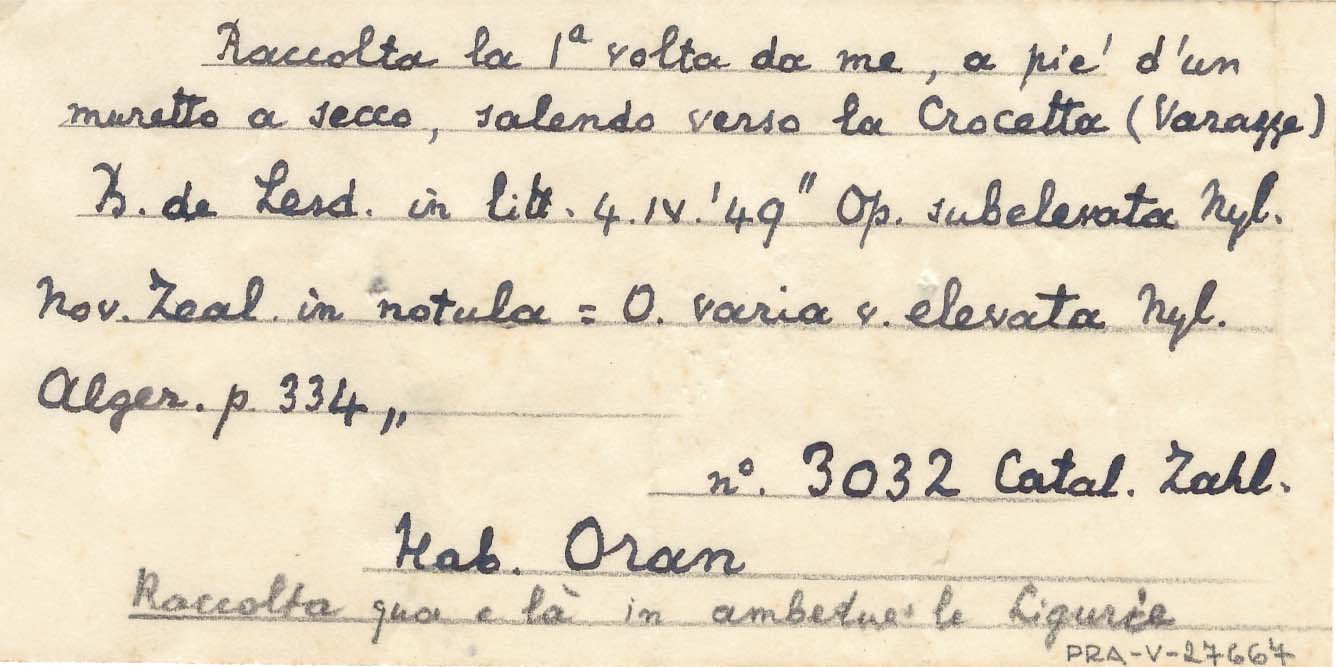 Raccolta la 1ª volta da me, a pie' d'un
muretto a secco, salendo verso la Crocetta (Varazze)
B. de Lesd. in litt. 4.IV.'49" Op. subelevata Nyl.
Nov. Zeal. in notula = O. varia v. elevata Nyl.
Alger. p. 334 „
n°. 3032 Catal. Zahl.
Hab. Oran
Raccolta qua e là in ambedue le Ligurie
PRA-V-27667